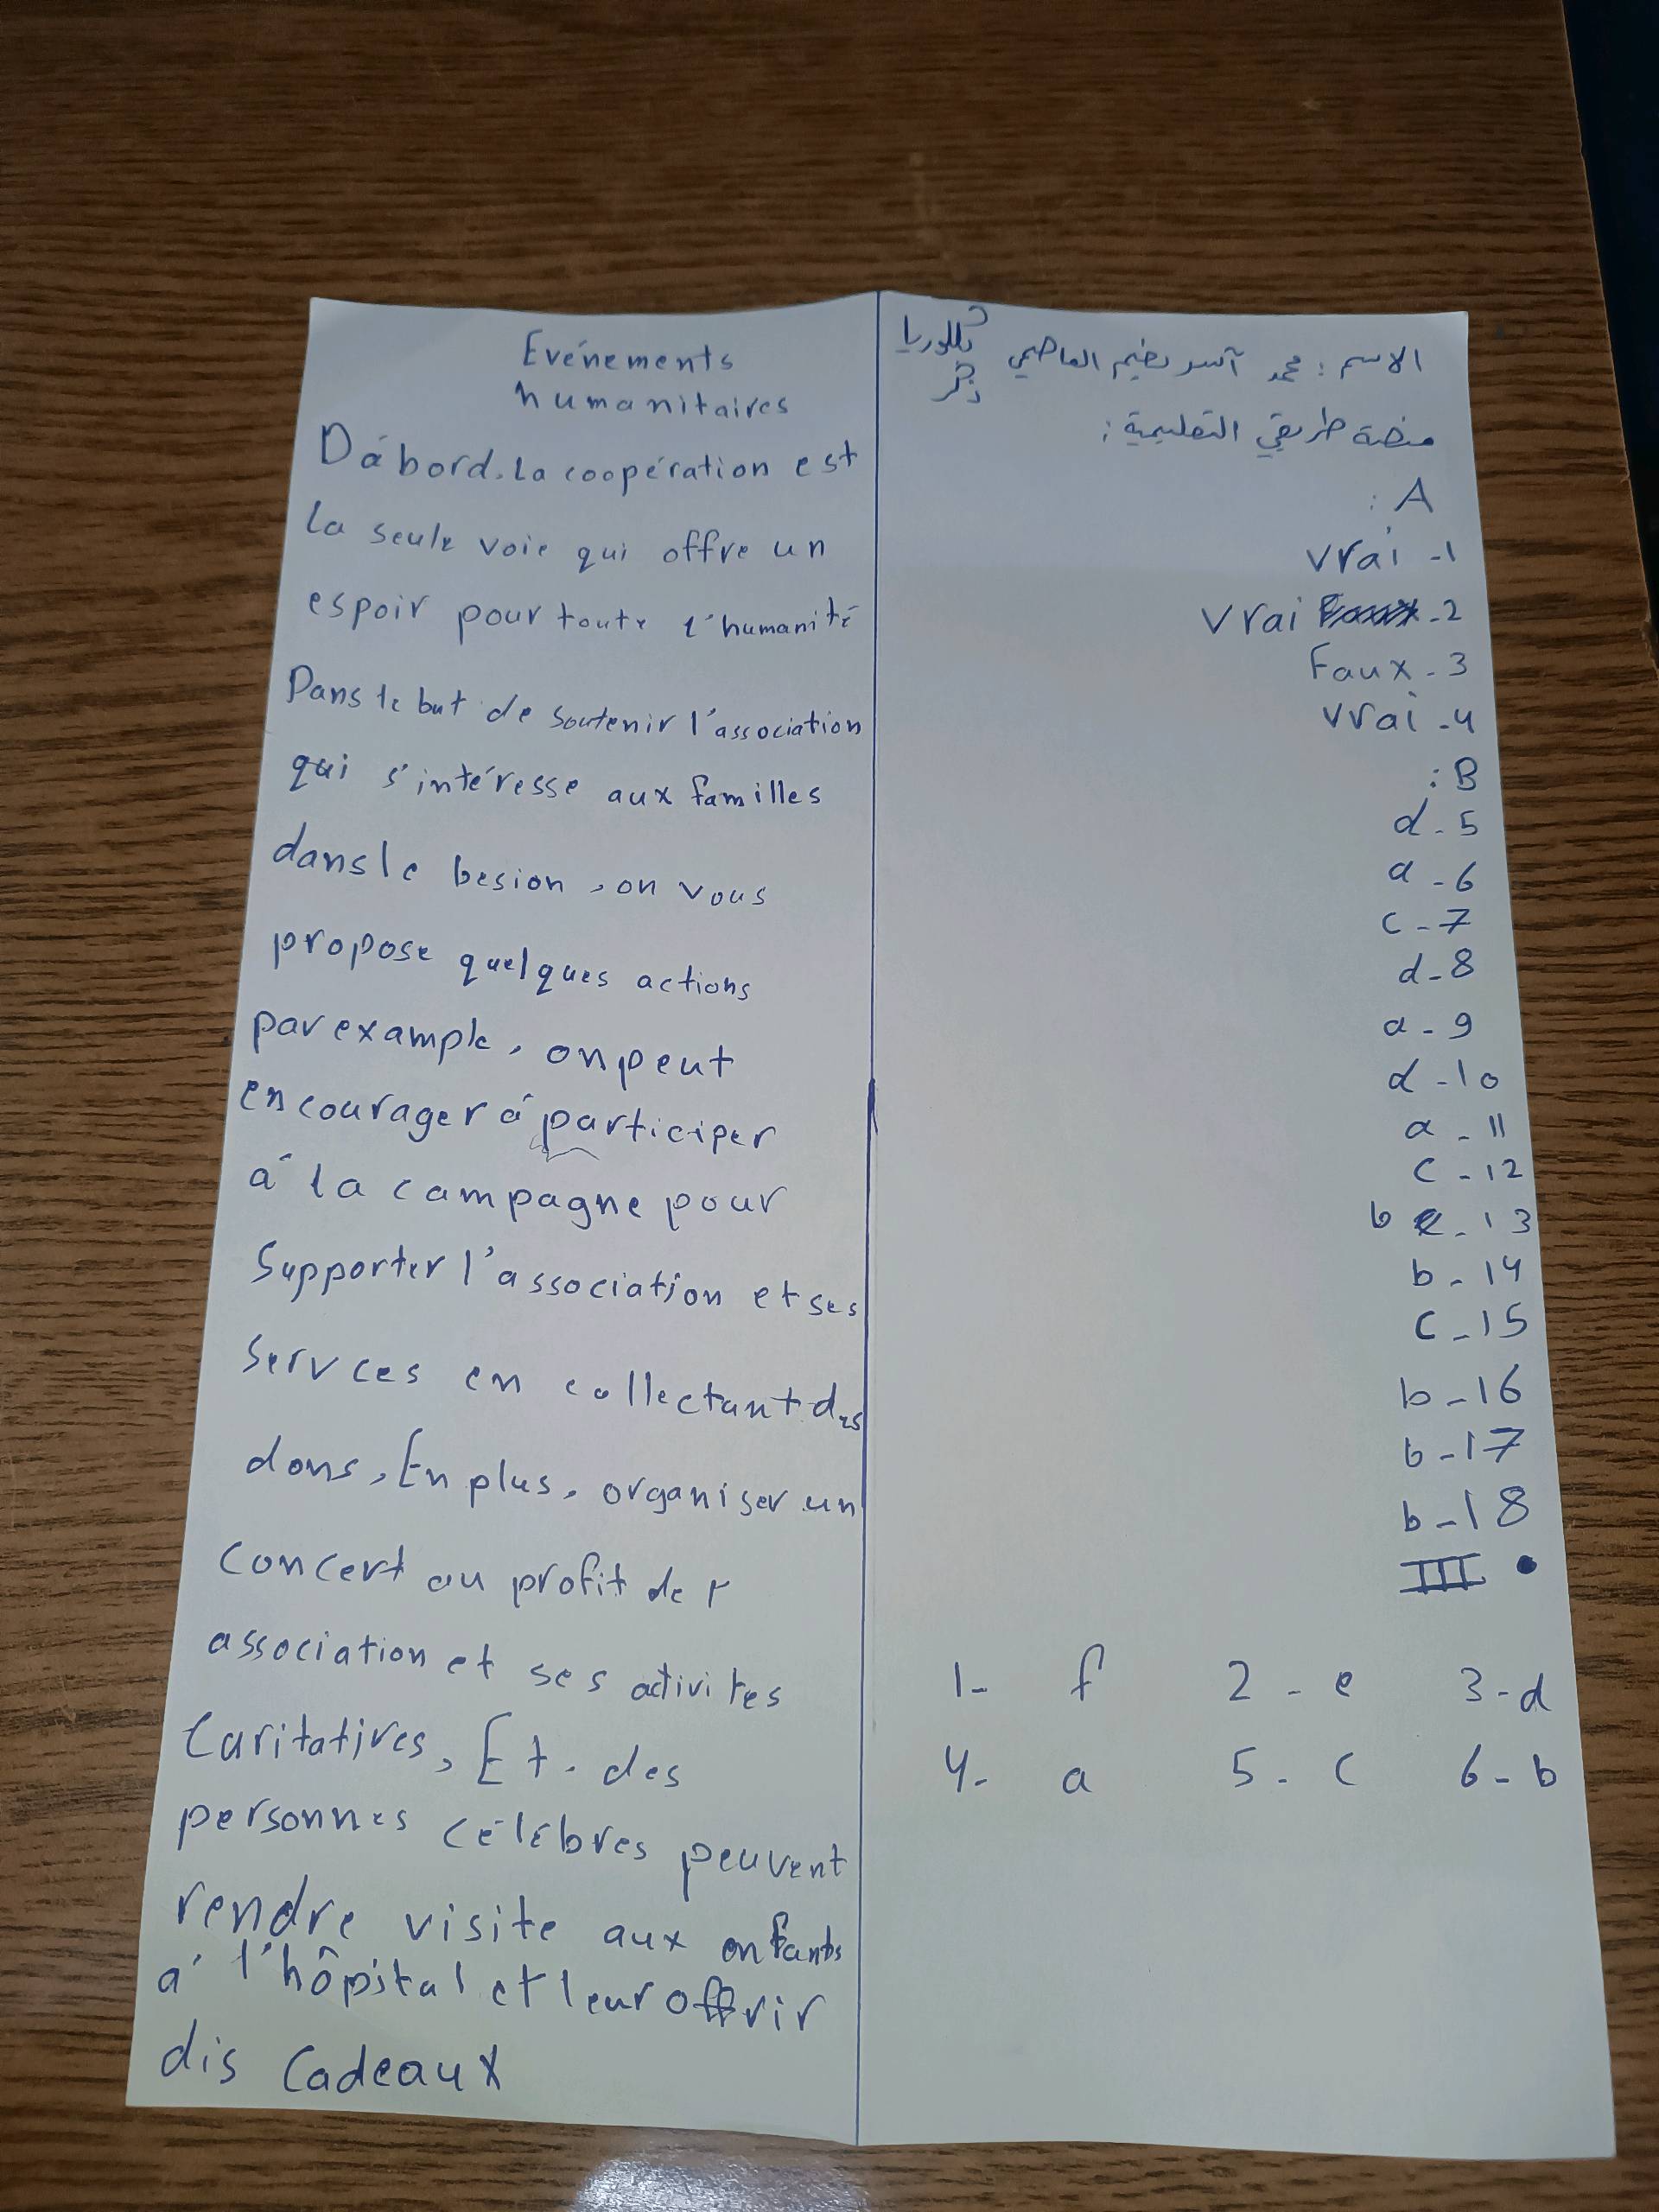 الاسم : محمد آسر نضيم العاصي بكلوريا
ذكر
منصة طريقي التعليمية :
A :
vrai -1
vrai -2
Faux -3
vrai -4
B :
d - 5
a - 6
c - 7
d - 8
a - 9
d - 10
a - 11
c - 12
b - 13
b - 14
c - 15
b - 16
b - 17
b - 18
III •
1- f 2 - e 3 - d
4- a 5 - c 6 - b
Evénements
humanitaires
Dábord. La coopération est
la seule voie qui offre un
espoir pour toute l'humanité
Dans le but de soutenir l'association
qui s'intéresse aux familles
dans le besion , on vous
propose quelques actions
par example , on peut
encourager á participer
á la campagne pour
Supporter l'association et ses
Servces en collectant des
dons, En plus, organiser un
concert au profit de l'
association et ses activites
Caritatives, Et. des
personnes célébres peuvent
rendre visite aux enfants
á l'hôpital et leur offrir
dis cadeaux